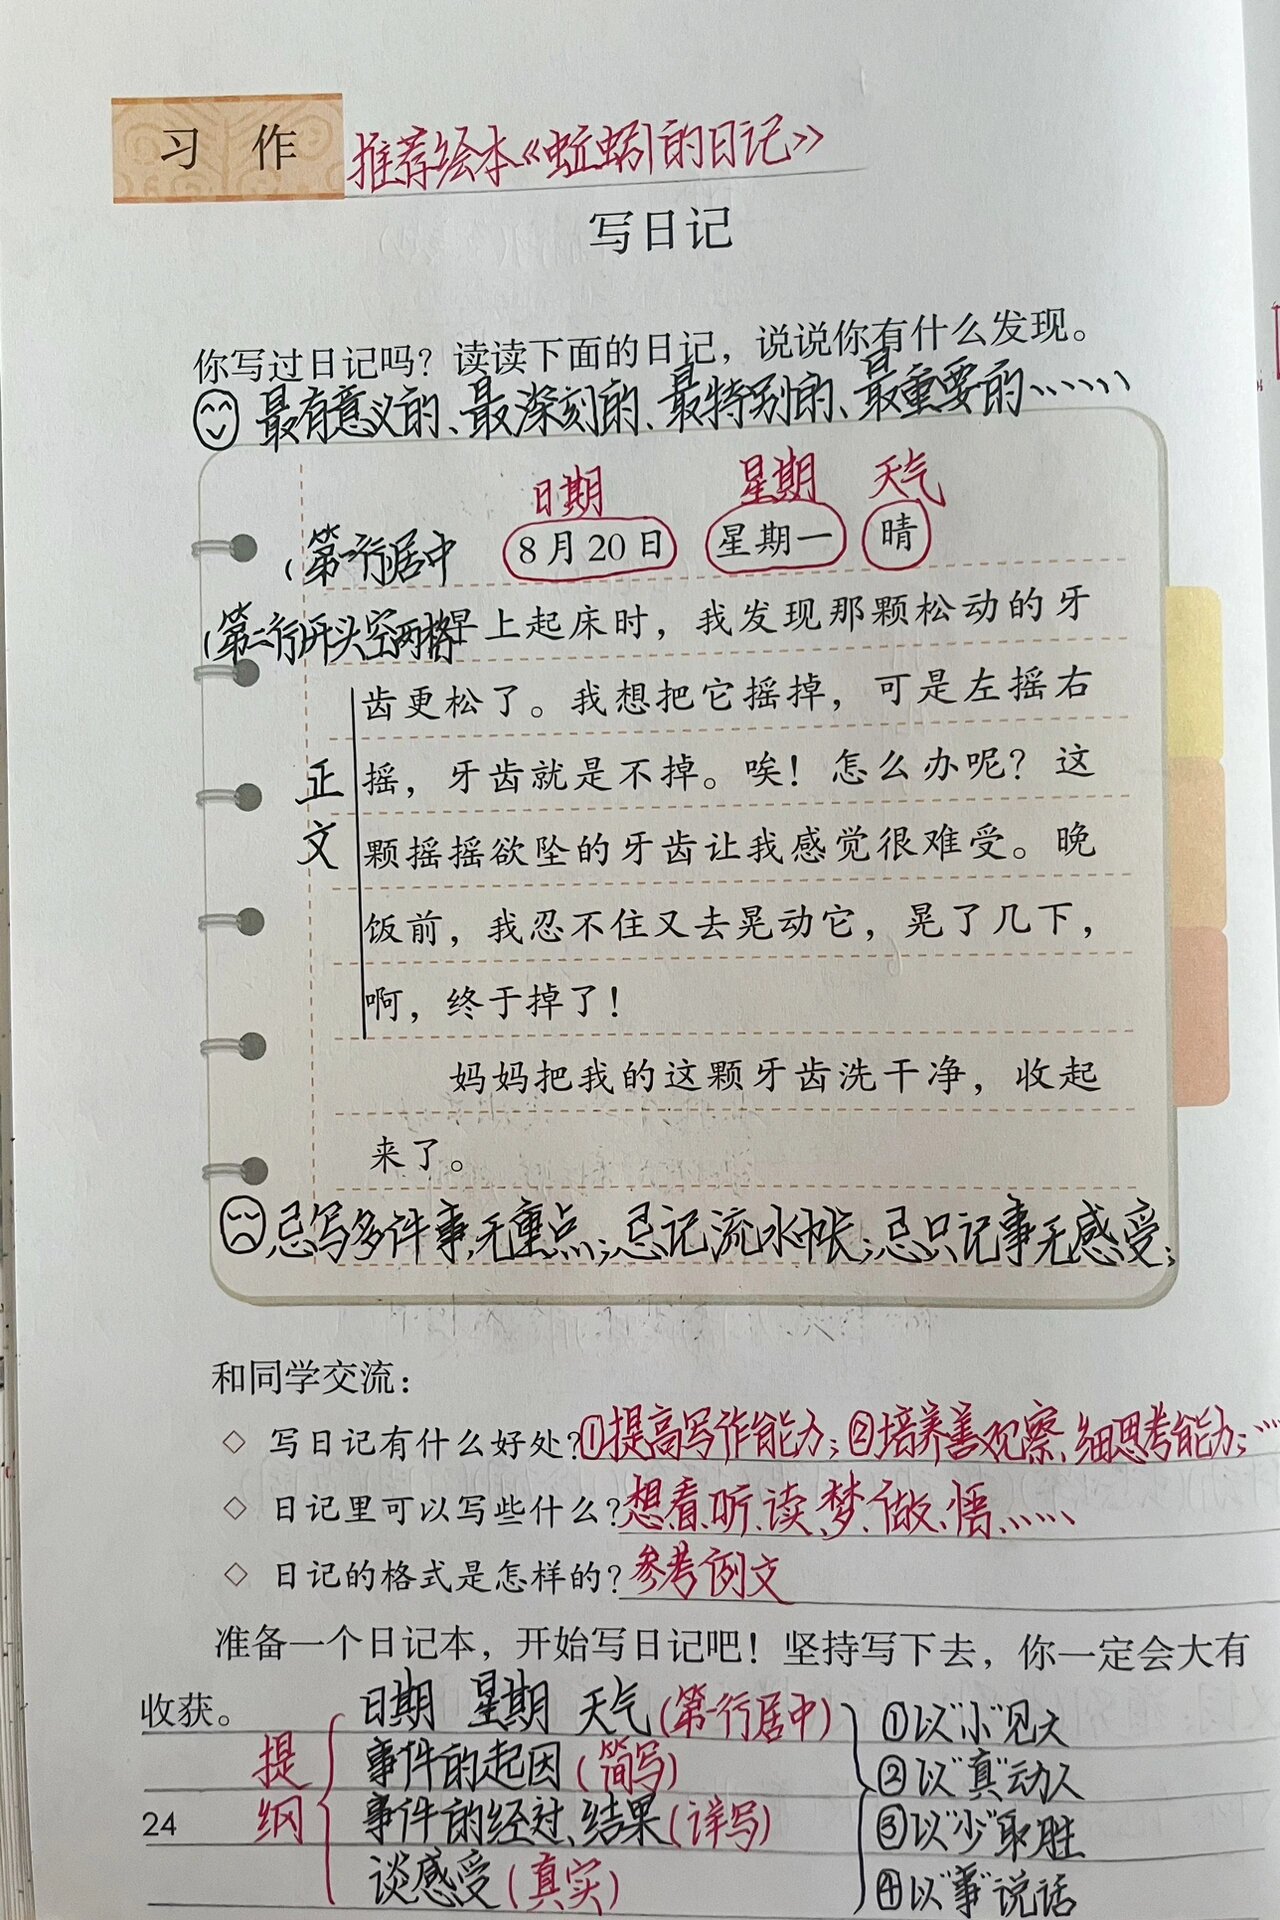 习 作 推荐绘本《蚯蚓的日记》
写日记
你写过日记吗？读读下面的日记，说说你有什么发现。
最有意义的、最深刻的、最特别的、最重要的……
日期 星期 天气
（第一行居中 8月20日 星期一 晴
（第二行）开头空两格 早上起床时，我发现那颗松动的牙
齿更松了。我想把它摇掉，可是左摇右
正 摇，牙齿就是不掉。唉！怎么办呢？这
文 颗摇摇欲坠的牙齿让我感觉很难受。晚
饭前，我忍不住又去晃动它，晃了几下，
啊，终于掉了！
妈妈把我的这颗牙齿洗干净，收起
来了。
忌写多件事，无重点；忌记流水帐；忌只记事无感受；
和同学交流：
◇ 写日记有什么好处？①提高写作能力；②培养善观察、细思考能力；……
◇ 日记里可以写些什么？想、看、听、读、梦、做、悟、……
◇ 日记的格式是怎样的？参考例文
准备一个日记本，开始写日记吧！坚持写下去，你一定会大有
收获。 日期 星期 天气（第一行居中） ①以“小”见大
提 事件的起因（简写） ②以“真”动人
24 纲 事件的经过、结果（详写） ③以“少”取胜
谈感受（真实） ④以“事”说话